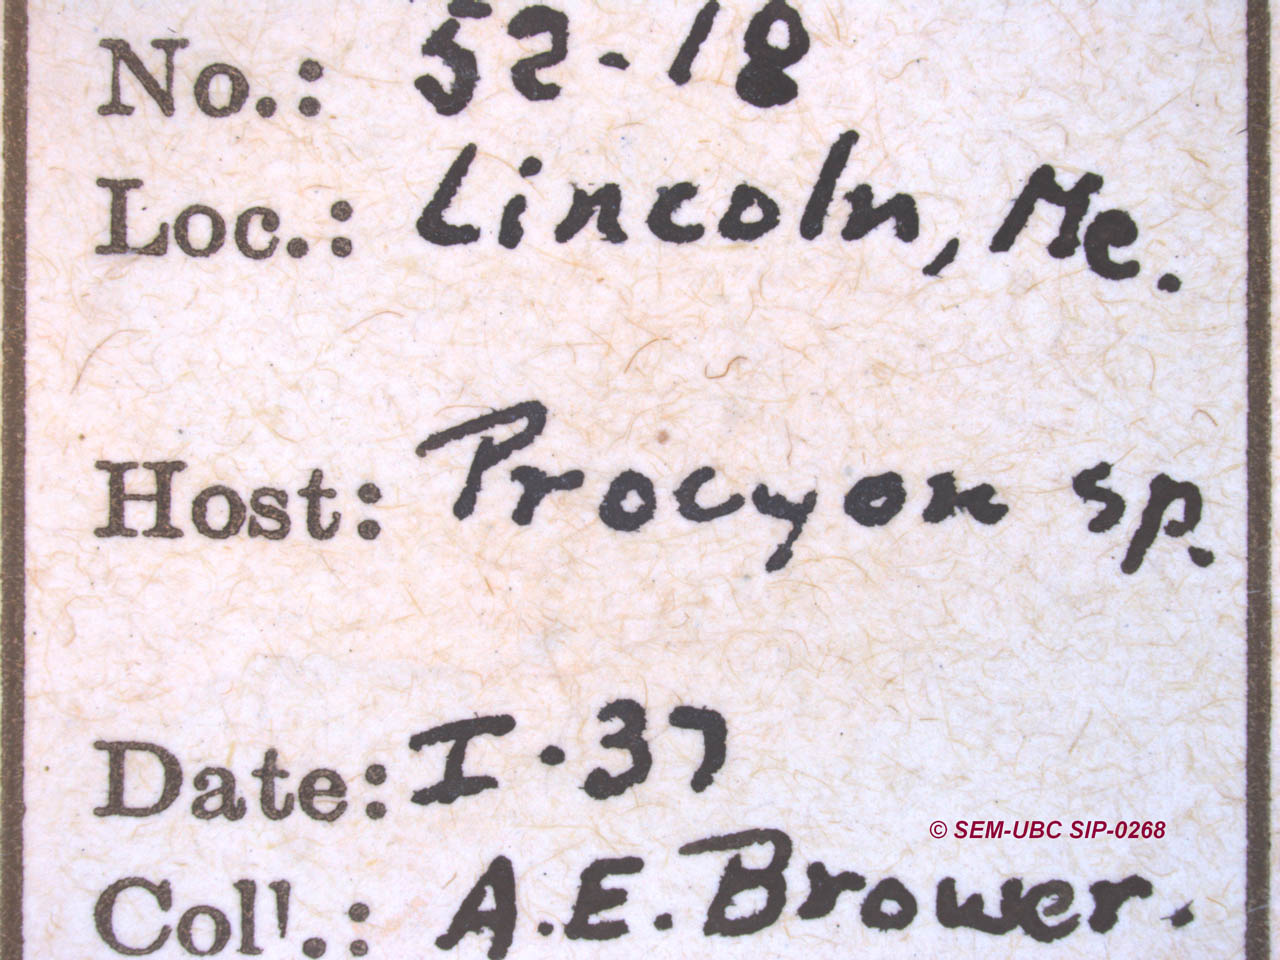 No.: 52-18
Loc.: Lincoln, Me.
Host: Procyon sp.
Date: I.37
© SEM-UBC SIP-0268
Coll.: A.E. Brower.